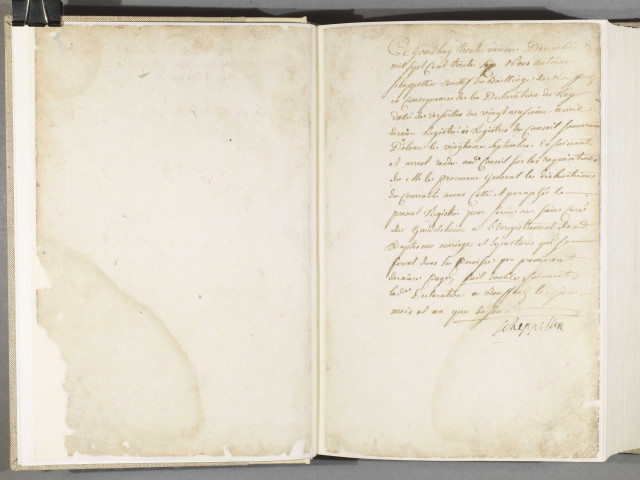 Ce Jourdhuy trente unieme Decembre
mil sept Cent trente six Nous antoine
scheppelin Baillage de Rouffach
en Consequence de la Declaration du Roy
datée de versailles du vingt neufvieme avril
dernier Registrée és Registres du Conseil souverain
D'alsace le vingtieme septembre
et arrest rendu aud. Conseil sur les requisitions
de Mr. le procureur General les dixhuitieme
du Courant avons Cotté et paraphé le
present Registre pour servir au sieur Curé
de Gundolsheim a l'enregistrement des
Baptesmes mariage et sepultures qui se
feront dans sa Paroisse par premiere et
derniere pages, fait double suivant
lad. Declaration a Rouffach les jour
mois et an que dessus
scheppelin